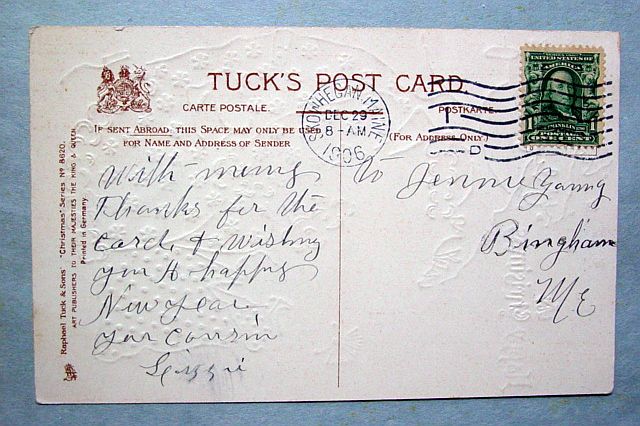 TUCK'S POST CARD.
CARTE POSTALE. POSTKARTE
IF SENT ABROAD THIS SPACE MAY ONLY BE USED
FOR NAME AND ADDRESS OF SENDER
(For Address Only.)
SKOWHEGAN, MAINE
DEC 29
8-AM
1906
With many
Thanks for the
Card & wishing
you A happy
New year
your cousin
Lizzie
to Jennie Young
Bingham
Me
Raphael Tuck & Sons' "Christmas" Series Nº 8620.
ART PUBLISHERS TO THEIR MAJESTIES THE KING & QUEEN.
Printed in Germany.
UNITED STATES OF
AMERICA